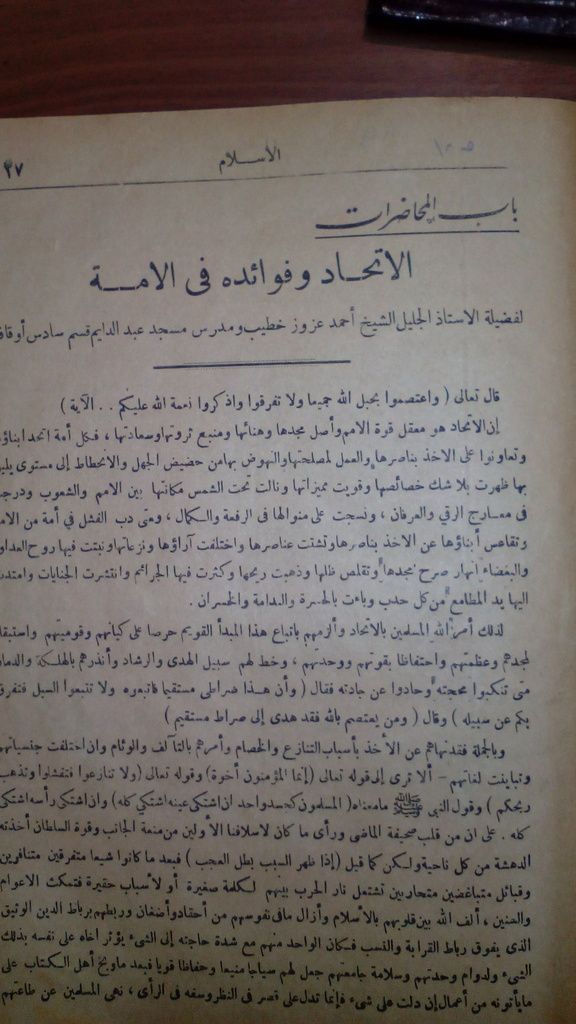 ٣٧ الاسلام
باب المحاضرات
الاتحاد وفوائده فى الامة
لفضيلة الاستاذ الجليل الشيخ أحمد عزوز خطيب ومدرس مسجد عبد الدايم قسم سادس أوقاف
قال تعالى ( واعتصموا بحبل الله جميعا ولا تفرقوا واذكروا نعمة الله عليكم . . الآية )
إن الاتحاد هو معقل قوة الامم وأصل مجدها وهنائها ومنبع ثروتها وسعادتها ، فكل أمة اتحد ابناؤ
وتعاونوا على الاخذ بناصرها والعمل لمصلحتها والنهوض بها من حضيض الجهل والانحطاط إلى مستوى يليق
بها ظهرت بلا شك خصائصها وقويت مميزاتها ونالت تحت الشمس مكانتها بين الامم والشعوب ودرجت
فى معارج الرقي والعرفان ، ونسجت على منوالها فى الرفعة والكمال ، ومتى دب الفشل في أمة من الامم
وتقاعس أبناؤها عن الاخذ بناصرها وتشتت عناصرها واختلفت آراؤها ونزعاتها ونبتت فيها روح العداو
والبغضاء انهار صرح مجدها وتقلص ظلها وذهبت ريحها وكثرت فيها الجرائم وانتشرت الجنايات وامتدت
اليها يد المطامع من كل حدب وباءت بالحسرة والندامة والخسران .
لذلك أمر الله المسلمين بالاتحاد وألزمهم باتباع هذا المبدأ القويم حرصا على كيانهم وقوميتهم واستبقا
لمجدهم وعظمتهم واحتفاظا بقوتهم ووحدتهم ، وخط لهم سبيل الهدى والرشاد وأنذرهم بالهلكة والدمار
متى تنكبوا محجته وحادوا عن جادته فقال ( وأن هذا صراطى مستقيما فاتبعوه ولا تتبعوا السبل فتفرق
بكم عن سبيله ) وقال ( ومن يعتصم بالله فقد هدى إلى صراط مستقيم )
وبالجملة فقد نهاهم عن الأخذ بأسباب التنازع والخصام وأمرهم بالتآلف والوئام وان اختلفت جنسياتهم
وتباينت لغاتهم – ألا ترى إلى قوله تعالى (إنما المؤمنون أخوة) وقوله تعالى (ولا تنازعوا فتفشلوا وتذهب
ريحكم ) وقول النبي ﷺ ما معناه ( المسلمون كجسد واحد ان اشتكى عينه اشتكى كله ) وان اشتكى رأسه اشتكى
كله . على ان من قلب صحيفة الماضى ورأى ما كان لاسلافنا الأولين من منعة الجانب وقوة السلطان أخذته
الدهشة من كل ناحية ولكن كما قيل ( إذا ظهر السبب بطل العجب ) فبعد ما كانوا شيعا متفرقين متنافرين
وقبائل متباغضين متحاربين تشتعل نار الحرب بينهم لكلمة صغيرة أو لأسباب حقيرة فتمكث الاعوام
والسنين ، ألف الله بين قلوبهم بالاسلام وأزال مافى نفوسهم من أحقاد وأضغان وربطهم برباط الدين الوثيق
الذى يفوق رباط القرابة والنسب فكان الواحد منهم مع شدة حاجته إلى الشىء يؤثر أخاه على نفسه بذلك
الشىء ولدوام وحدتهم وسلامة جامعتهم جعل لهم سياجا منيعا وحفاظا قويا فبعد ماوبخ أهل الكتاب على
مايأتونه من أعمال إن دلت على شىء فإنما تدل على قصر فى النظر وسفه فى الرأى ، نهى المسلمين عن طاعتهم